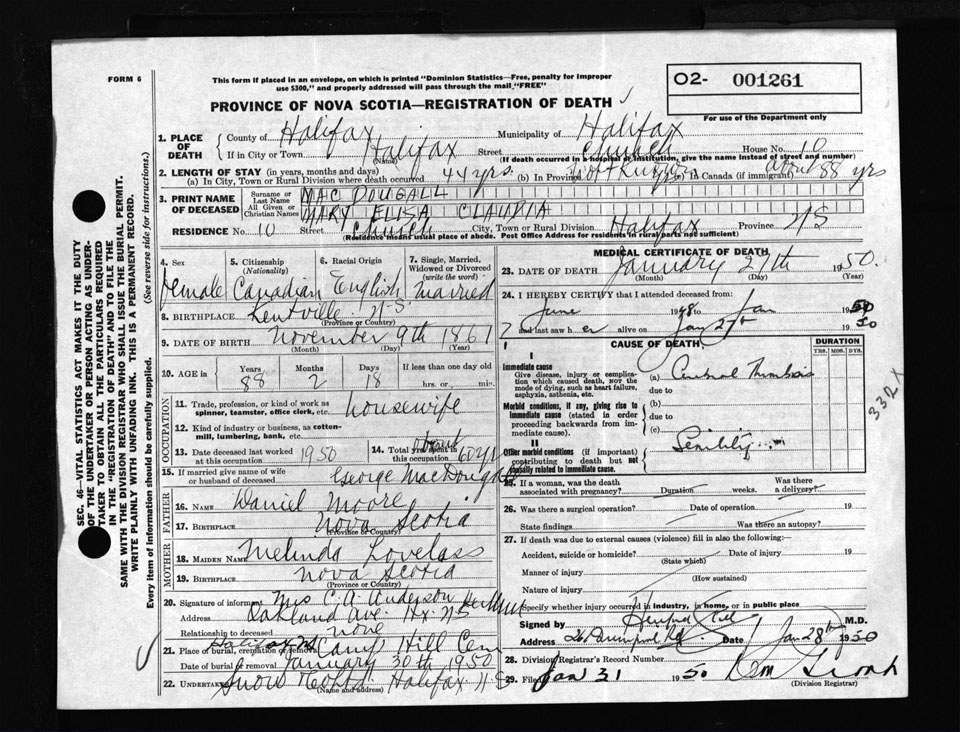 FORM 6
This form if placed in an envelope, on which is printed "Dominion Statistics—Free, penalty for improper
use $300," and properly addressed will pass through the mail "FREE"
O2- 001261
For use of the Department only
PROVINCE OF NOVA SCOTIA—REGISTRATION OF DEATH
1. PLACE OF DEATH
County of Halifax Municipality of Halifax
If in City or Town Halifax (Name) Street Church House No. 10
(If death occurred in a hospital or institution, give the name instead of street and number)
2. LENGTH OF STAY (in years, months and days)
(a) In City, Town or Rural Division where death occurred 44 yrs. (b) In Province (c) in Canada (if immigrant) about 88 yrs
3. PRINT NAME OF DECEASED
Surname or Last Name MAC DOUGALL
All Given or Christian Names MARY ELISA CLAUDIA
RESIDENCE No. 10 Street Church City, Town or Rural Division Halifax Province NS
(Residence means usual place of abode. Post Office Address for residents in rural parts not sufficient)
4. Sex female
5. Citizenship (Nationality) Canadian
6. Racial Origin English
7. Single, Married, Widowed or Divorced (write the word) Married
8. BIRTHPLACE Kentville NS
(Province or Country)
9. DATE OF BIRTH November 9th 1861
(Month) (Day) (Year)
10. AGE in Years 88 Months 2 Days 18 If less than one day old hrs. or min.
OCCUPATION
11. Trade, profession, or kind of work as spinner, teamster, office clerk, etc. housewife
12. Kind of industry or business, as cotton-mill, lumbering, bank, etc.
13. Date deceased last worked at this occupation 1950
14. Total yrs. spent in this occupation about 60 yrs
15. If married give name of wife or husband of deceased George MacDougall
FATHER
16. Name Daniel Moore
17. Birthplace Nova Scotia
(Province or Country)
MOTHER
18. MAIDEN NAME Melinda Lovelass
19. BIRTHPLACE Nova Scotia
(Province or Country)
20. Signature of informant Mrs C. A. Anderson
Address Oakland Ave. Hx NS
Relationship to deceased none
21. Place of burial, cremation or removal Halifax Camp Hill Cem
Date of burial or removal January 30th 1950
22. Undertaker Snow Halifax N.S
(Name and address)
MEDICAL CERTIFICATE OF DEATH
23. DATE OF DEATH January 27th 1950
(Month) (Day) (Year)
24. I HEREBY CERTIFY that I attended deceased from:
June 1948 to Jan 1950
and last saw her alive on Jan 27th 1950
CAUSE OF DEATH
DURATION
YRS. MOS. DYS.
I
Immediate cause
Give disease, injury or complication which caused death, NOT the mode of dying, such as heart failure, asphyxia, asthenia, etc.
(a) Cerebral Thrombosis
due to
Morbid conditions, if any, giving rise to immediate cause (stated in order proceeding backwards from immediate cause).
(b)
due to
(c)
II
Other morbid conditions (if important) contributing to death but not causally related to immediate cause.
Senility
332X
25. If a woman, was the death associated with pregnancy? Duration weeks. Was there a delivery?
26. Was there a surgical operation? Date of operation 19
State findings Was there an autopsy?
27. If death was due to external causes (violence) fill in also the following:
Accident, suicide or homicide? (State which) Date of injury 19
Manner of injury (How sustained)
Nature of injury
Specify whether injury occurred in industry, in home, or in public place
Signed by M.D.
Address Date Jan 28th 1950
28. Division Registrar's Record Number
29. Filed Jan 31 1950
(Division Registrar)
SEC. 46—VITAL STATISTICS ACT MAKES IT THE DUTY
OF THE UNDERTAKER OR PERSON ACTING AS UNDER-
TAKER TO OBTAIN ALL THE PARTICULARS REQUIRED
IN THE "REGISTRATION OF DEATH" AND TO FILE THE
SAME WITH THE DIVISION REGISTRAR WHO SHALL ISSUE THE BURIAL PERMIT.
WRITE PLAINLY WITH UNFADING INK. THIS IS A PERMANENT RECORD.
Every item of information should be carefully supplied. (See reverse side for instructions.)